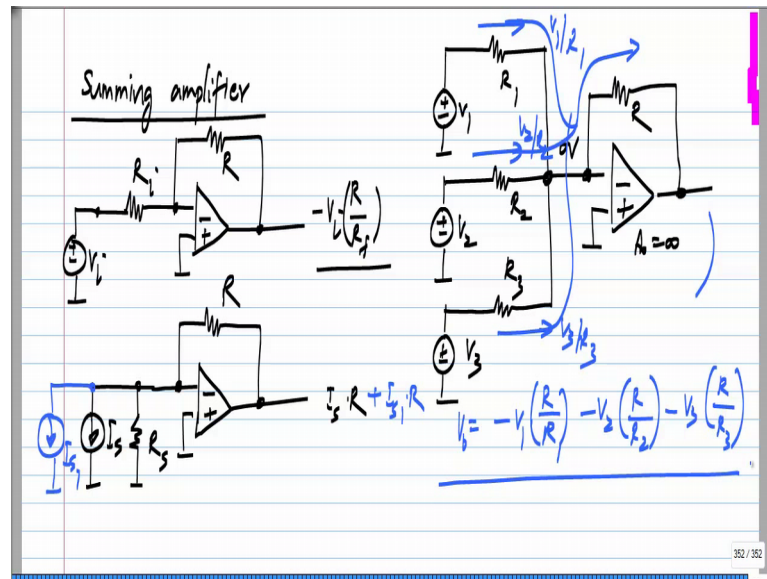 Summing amplifier
R
Ri
Vi
-Vi(R/Rf)
R
Is
Rs
Is1
Is·R + Is1·R
V1/R1
R1
V1
V2/R2
0V
R
R2
V2
A0=∞
R3
V3/R3
V3
V0 = -V1(R/R1) - V2(R/R2) - V3(R/R3)
352 / 352